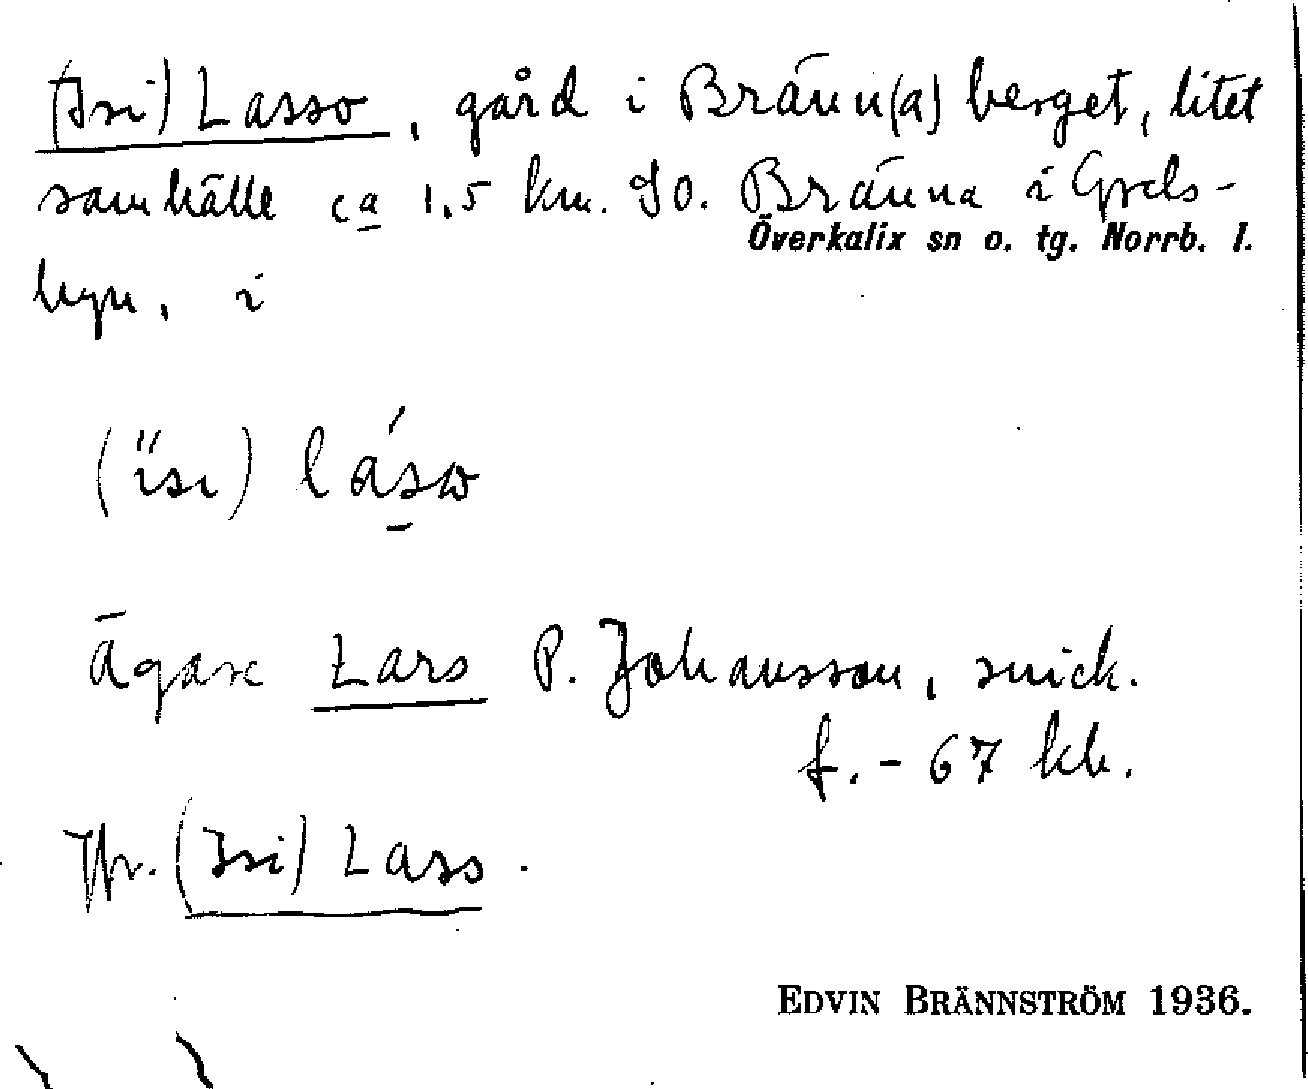 (Isi) Lasso, gård i Bränn(a)berget, litet
samhälle ca 1,5 km. SO. Bränna i Grels-
Överkalix sn o. tg. Norrb. l.
byn, i
(ïsi) láso
ägare Lars P. Johansson, snick.
f. -67 kh.
Jfr. (Isi) Lars.
EDVIN BRÄNNSTRÖM 1936.